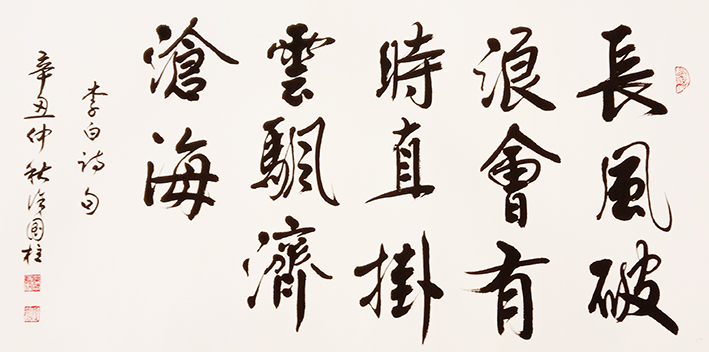 長風破
浪會有
時直掛
雲颿濟
滄海
李白诗句
辛丑仲秋國柱